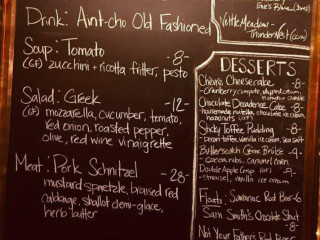 Drink: Aint-cho Old Fashioned
Soup: Tomato -8-
(GF) zucchini + ricotta fritter, pesto
Salad: Greek -12-
(GF) mozzarella, cucumber, tomato,
red onion, roasted pepper,
olive, red wine vinaigrette
Meat: Pork Schnitzel -28-
mustard spaetzle, braised red
cabbage, shallot demi-glace,
herb butter
DESSERTS
Chèvre Cheesecake -8-
- cranberry compote, whipped cream,
Chocolate Decadence Cake -8-
housemade nutella, chocolate ice cream,
hazelnuts (GF)
Sticky Toffee Pudding -8-
vanilla ice cream, sea salt
Butterscotch Crème Brûlée -
- cacao nibs, caramel
Double Apple Crisp (GF) -9
- streusel, vanilla ice cream
Floats: Saranac Root Beer -6
Sam Smith's Chocolate Stout
-8
Not Your Father's Root Beer